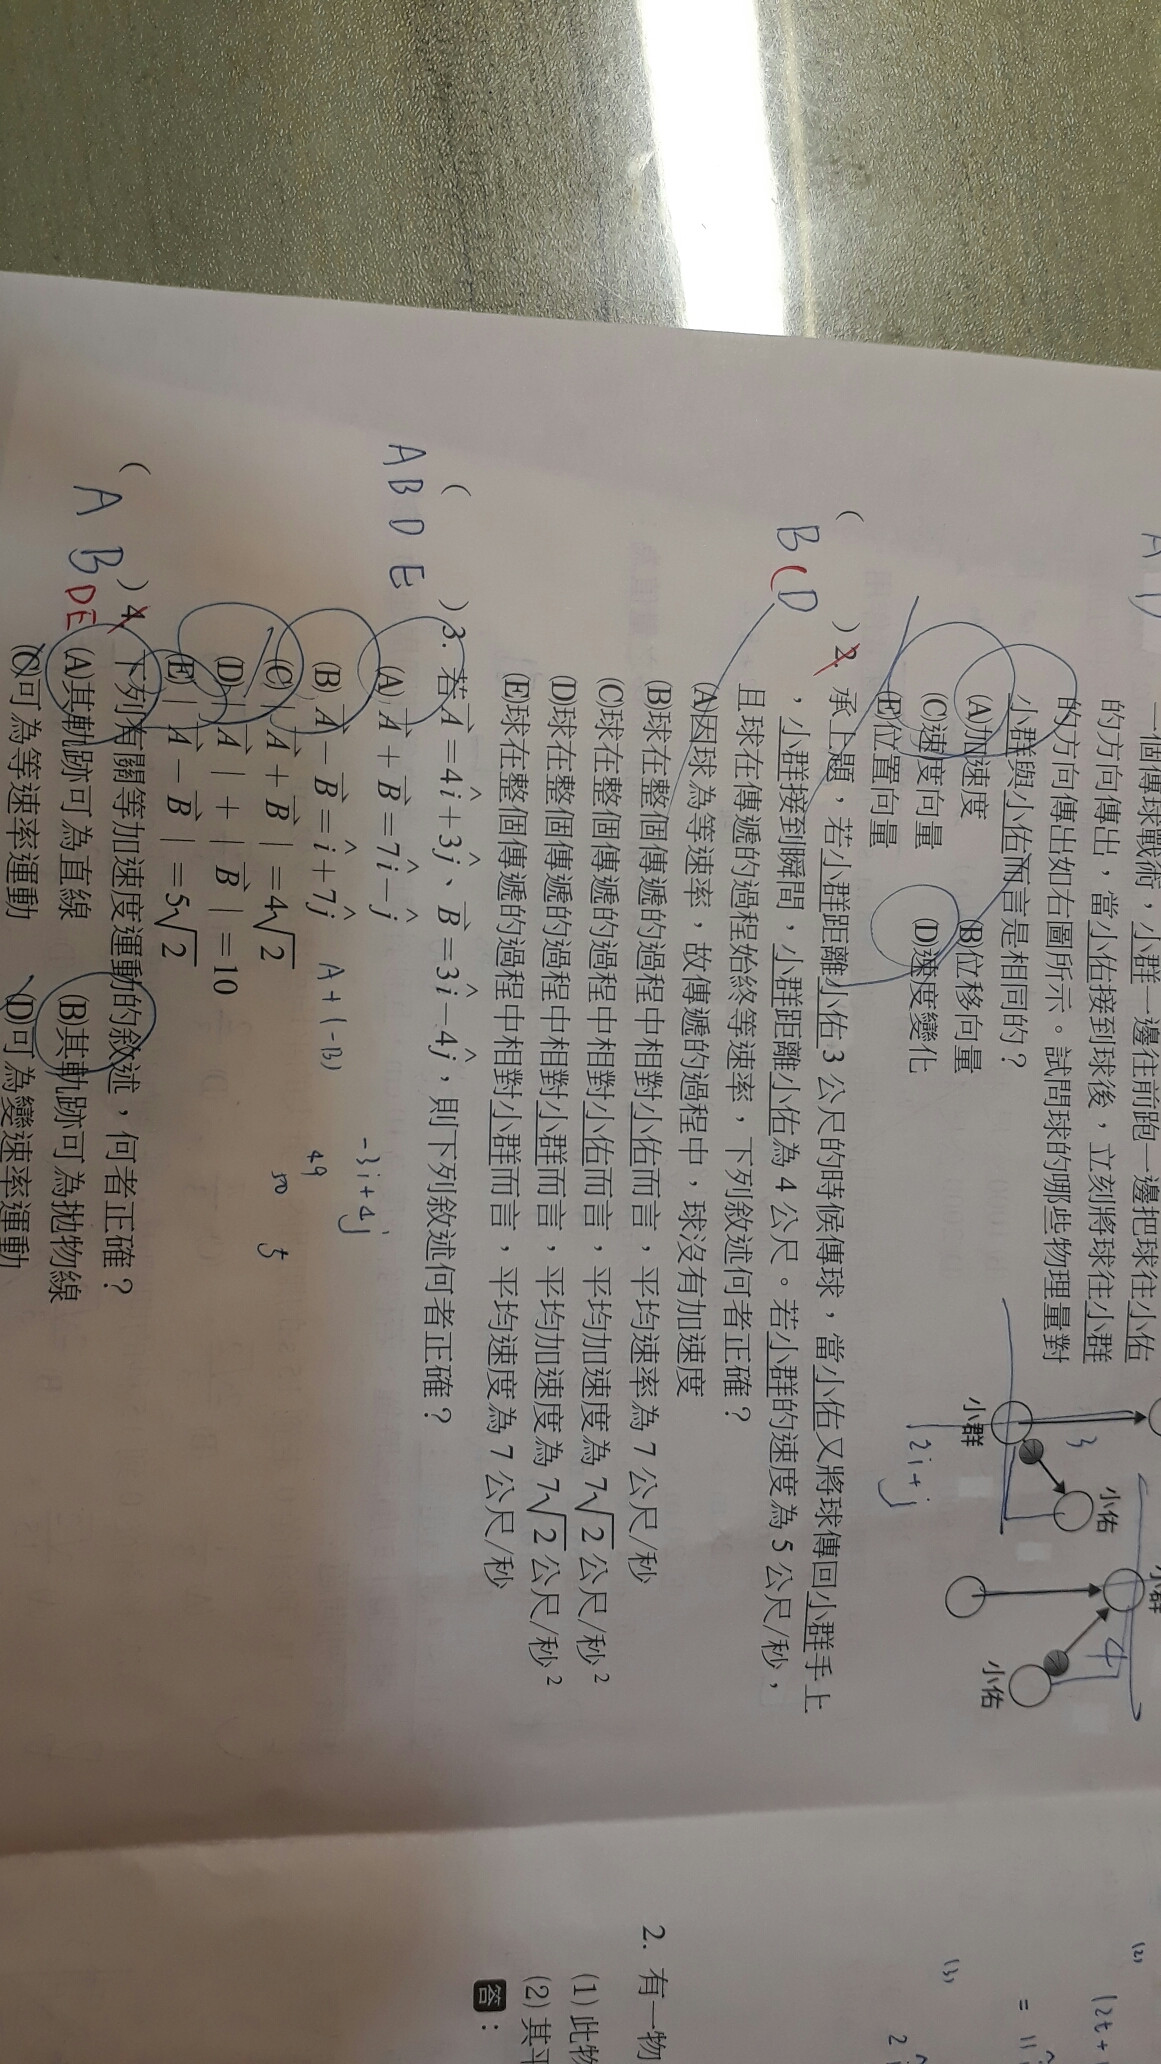 一個傳球戰術，小群一邊往前跑一邊把球往小佑
的方向傳出，當小佑接到球後，立刻將球往小群
的方向傳出如右圖所示。試問球的哪些物理量對
小群與小佑而言是相同的？
(A)加速度 (B)位移向量
(C)速度向量 (D)速度變化
(E)位置向量
小群
小佑
3
小群
小佑
4
12i+j
( BCD )2. 承上題，若小群距離小佑 3 公尺的時候傳球，當小佑又將球傳回小群手上
，小群接到瞬間，小群距離小佑為 4 公尺。若小群的速度為 5 公尺/秒，
且球在傳遞的過程始終等速率，下列敘述何者正確？
(A)因球為等速率，故傳遞的過程中，球沒有加速度
(B)球在整個傳遞的過程中相對小佑而言，平均速率為 7 公尺/秒
(C)球在整個傳遞的過程中相對小佑而言，平均加速度為 7√2 公尺/秒²
(D)球在整個傳遞的過程中相對小群而言，平均加速度為 7√2 公尺/秒²
(E)球在整個傳遞的過程中相對小群而言，平均速度為 7 公尺/秒
( ABDE )3. 若A⃗=4î+3ĵ、B⃗=3î−4ĵ，則下列敘述何者正確？
(A) A⃗+B⃗=7î−ĵ
-3i+4j
(B) A⃗−B⃗=î+7ĵ A+(-B)
49
(C)|A⃗+B⃗|=4√2
50 5
(D)|A⃗|+|B⃗|=10
(E)|A⃗−B⃗|=5√2
( ABDE )4. 下列有關等加速度運動的敘述，何者正確？
(A)其軌跡可為直線 (B)其軌跡可為拋物線
(C)可為等速率運動 (D)可為變速率運動
2. 有一物
(1)此物
(2)其平
答：
(2)
(3)